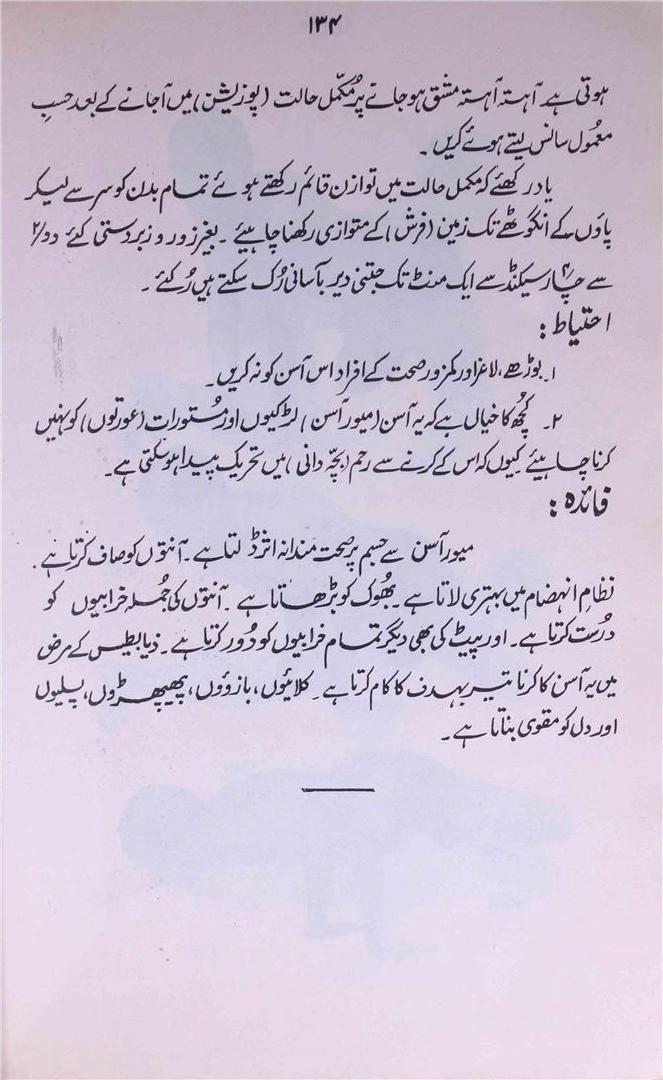 ۱۳۴
ہوتی ہے۔ آہستہ آہستہ مشق ہو جانے پر مُکمّل حالت (پوزیشن) میں آجانے کے بعد حسبِ
معمُول سانس لیتے ہوئے کریں۔
یاد رکھئے کہ مکمل حالت میں توازن قائم رکھتے ہوئے تمام بدن کو سر سے لیکر
پاؤں کے انگوٹھے تک زمین (فرش) کے متوازی رکھنا چاہیئے۔ بغیر زور و زبردستی کئے دو/۲
سے چار/۴ سیکنڈ سے ایک منٹ تک جتنی دیر بآسانی رُک سکتے ہیں رُکئے۔
احتیاط:
۱۔ بوڑھے، لاغر اور کمزور صحت کے افراد اس آسن کو نہ کریں۔
۲۔ کُچھ کا خیال ہے کہ یہ آسن (میور آسن) لڑکیوں اور مستُورات (عورتوں) کو نہیں
کرنا چاہیئے کیوں کہ اس کے کرنے سے رحم (بچّہ دانی) میں تحریک پیدا ہو سکتی ہے۔
فائدہ:
میور آسن سے جسم پر صحت مندانہ اثر ڈلتا ہے۔ آنتوں کو صاف کرتا ہے۔
نظامِ انہضام میں بہتری لاتا ہے۔ بھُوک کو بڑھاتا ہے۔ آنتوں کی جُملہ خرابیوں کو
دُرست کرتا ہے۔ اور پیٹ کی بھی دیگر تمام خرابیوں کو دُور کرتا ہے۔ ذیابطیس کے مرض
میں یہ آسن کا کرنا تیر بہدف کا کام کرتا ہے۔ کلائیوں، بازوؤں، پھیپھڑوں، پسلیوں
اور دل کو مقوی بناتا ہے۔